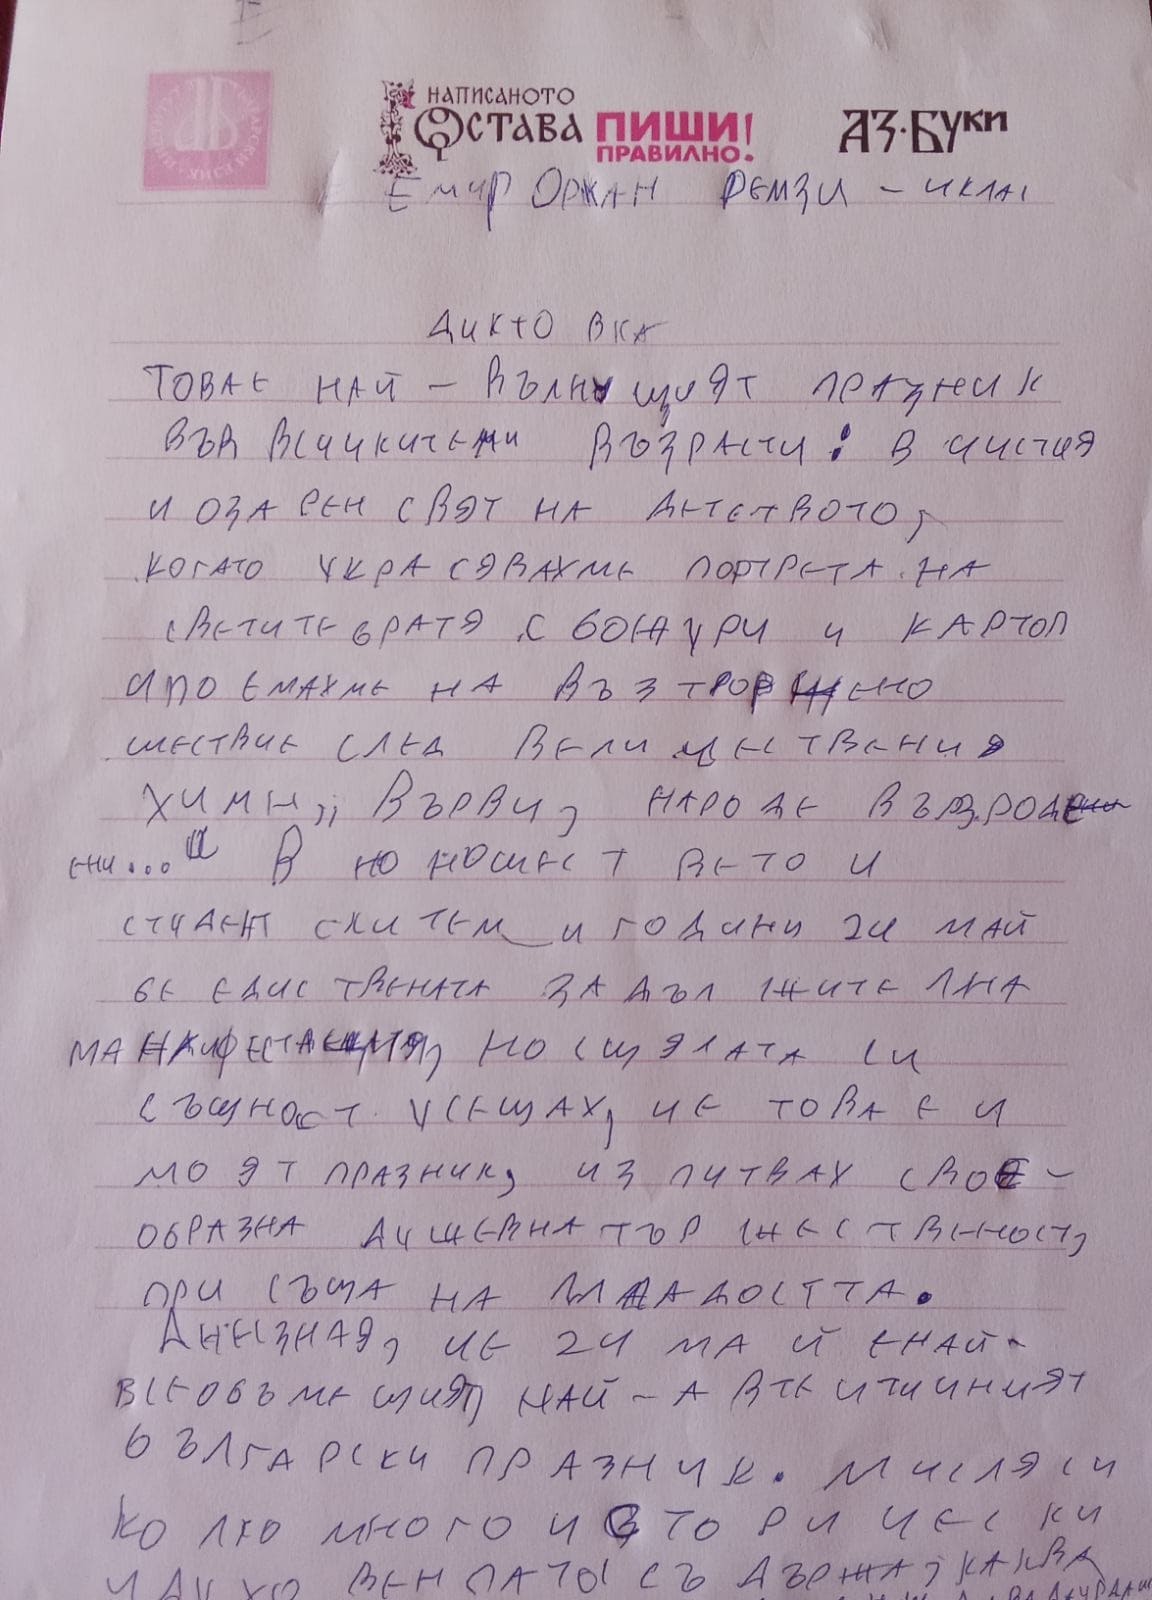 НАПИСАНОТО
ОСТАВА ПИШИ! АЗ·БУКИ
ПРАВИЛНО!
Емир Оржан Ремзи – и клас
Диктовка
Това е най – вълнущият празник
във всичкитени възрасти: в чистия
и озарен свят на детството,
когато украсявахме портрета на
светите братя с божури и картоп
и поемахме на възторжено
шествие след величествения
химн „Върви, народе възроде
ени..." В юношеството и
студентските ми години 24 май
бе единствената задължителна
манифестация, но с цялата си
същност усещах, че това е и
моят празник, изпитвах свое-
образна душевна тържественост,
присъща на младостта.
Днес зная, че 24 май е най-
всеобъмещият, най – автентичният
български празник. Мисля си
колко много исторически
и духовен патос съдържа, каква